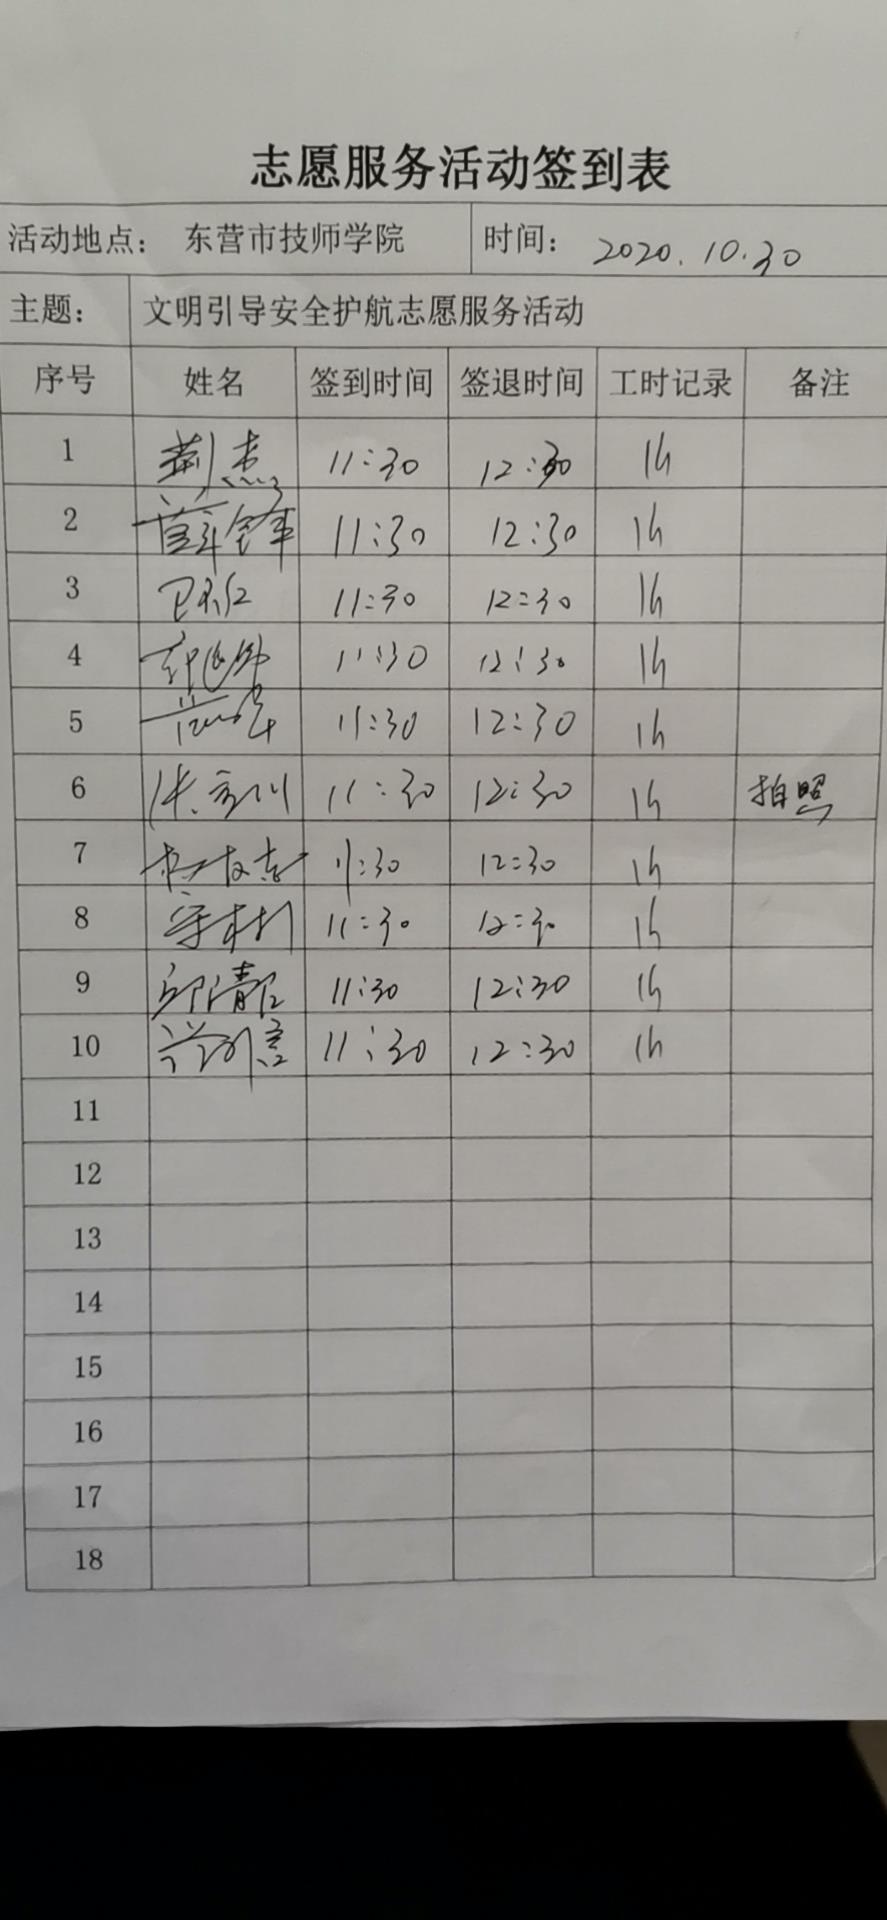 志愿服务活动签到表
活动地点： 东营市技师学院 时间： 2020.10.30
主题： 文明引导安全护航志愿服务活动
序号 姓名 签到时间 签退时间 工时记录 备注
1 荆杰 11:30 12:30 1h
2 11:30 12:30 1h
3 11:30 12:30 1h
4 11:30 12:30 1h
5 11:30 12:30 1h
6 11:30 12:30 1h 拍照
7 11:30 12:30 1h
8 11:30 12:30 1h
9 11:30 12:30 1h
10 11:30 12:30 1h
11
12
13
14
15
16
17
18